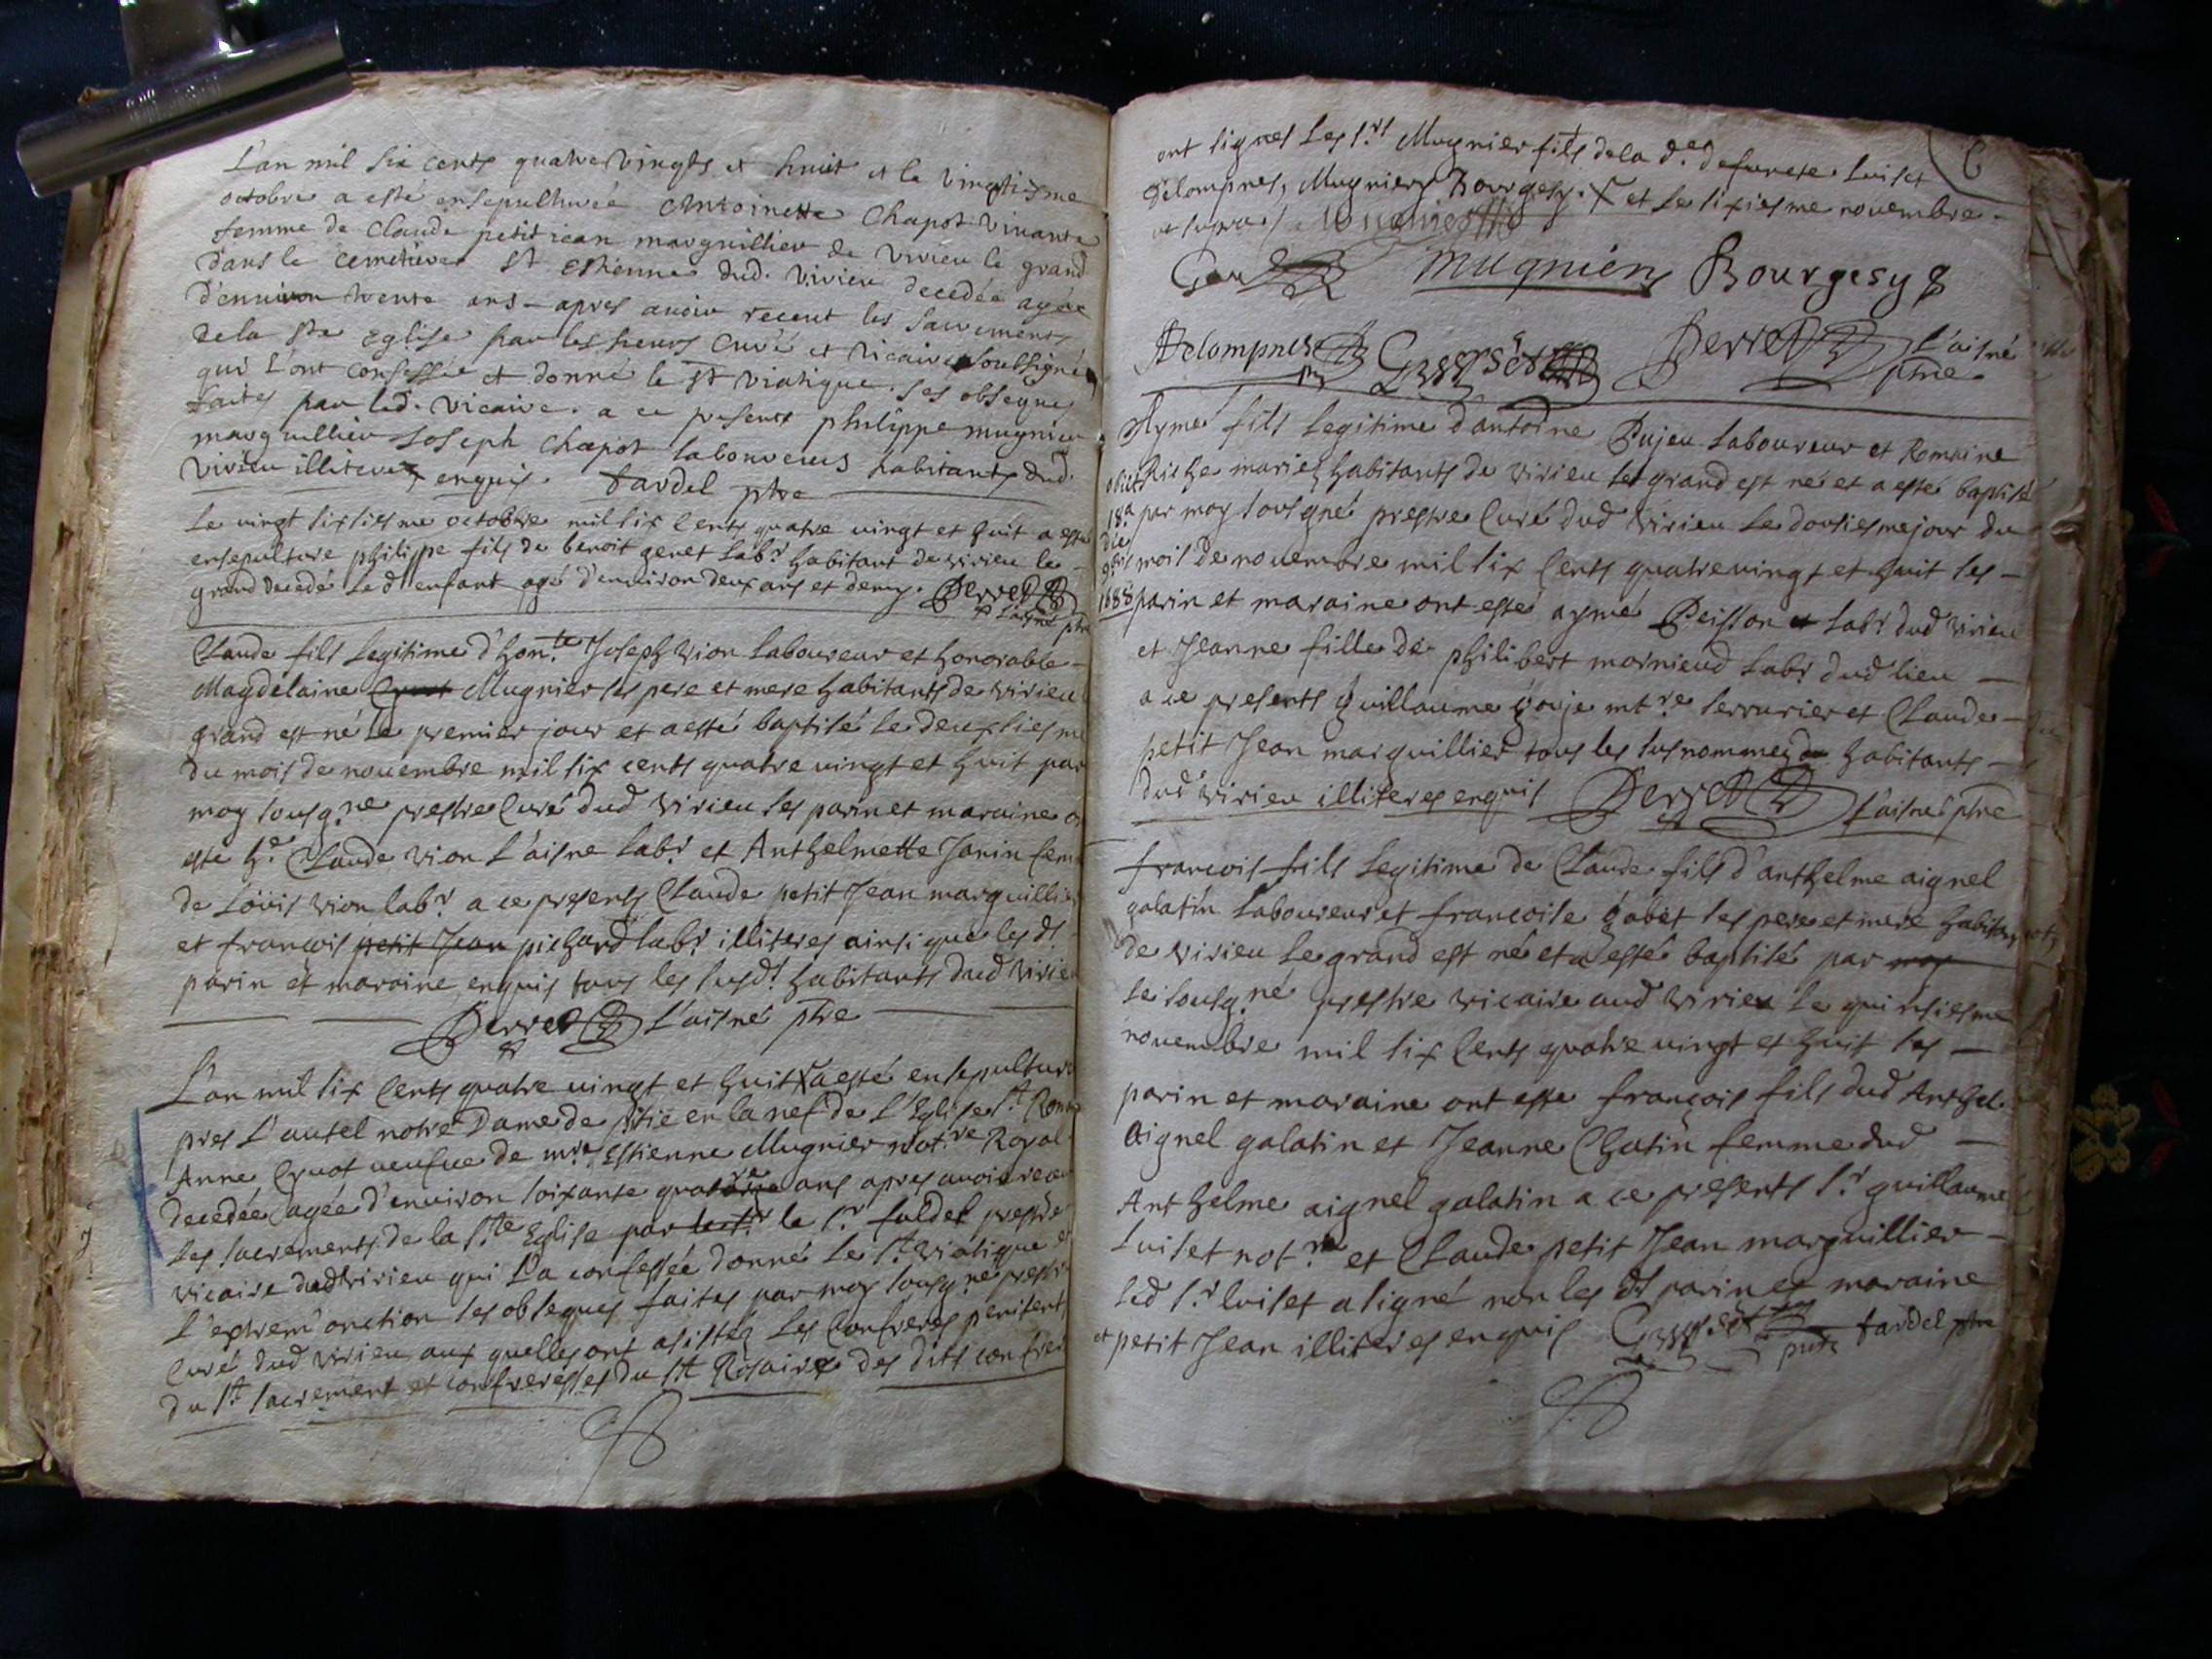 L'an mil six cents quatre vingts et huict et le vingtiesme
octobre a esté ensepulturée Antoinette Chapot vivante
femme de Claude petit iean marguillier de Virieu le grand
dans le cemetiere St Estienne dud. Virieu decedée agée
d'environ trente ans - apres avoir receut les Sacrements
de la Ste Eglise par les sieurs Curé et vicaire soubsignés
qui l'ont confessée et donné le St Viatique. Ses obseques
faites par led. vicaire. a ce presents philippe mugnier
marguillier Joseph Chapot laboureurs habitants dud.
Virieu illiteres enquis. fardel ptre
Le vingt sixsiesme octobre mil six Cents quatre vingt et huit a esté
ensepulture philippe fils de benoit genet Labr habitant de virieu le -
grand decedé led enfant agé d'environ deux ans et demy. Perret
L'aisné ptre
Claude fils Legitime d'honte Joseph Vion Laboureur et honorable -
Magdelaine Cruot Mugnier ses pere et mere habitants de virieu
grand est né le premier jour et a esté baptisé le deuxsiesme
du mois de novembre mil six cents quatre vingt et huit par
moy sousgne prestre Curé dud virieu ses parin et maraine on
este he Claude vion L'aisne labr et Anthelmette Janin fem
de Loüis vion labr a ce presents Claude petit Jean marguillier
et françois petit Jean pichard labr illiteres ainsi que les dt
parin et maraine enquis tous les susdt habitants dud virieu
Perret L'aisné ptre
L'an mil six Cents quatre vingt et huit a esté ensepulture
pres L'autel notre Dame de pitié en la nef de L'Eglise St Roma
Anne Cruot veufue de mre Estienne Mugnier notre Royal
decedée agée d'environ soixante quatorze ans apres avoir receu
les sacrements de la Ste Eglise par le Sr fardel prestre
vicaire dud virieu qui L'a confessée donné le St viatique et
L'extrem'onction ses obseques faites par moy sousgné prestre
Curé dud virieu aux quelles ont asistéz Les Confreres penitents
du St sacrement et confreresses du St Rosaire des dits confrer
ont signes Les Srs Mugnier fils de la de defuncte Luiset
Delompnes, Mugnier Bourgesy. X et le sixiesme novembre -
ut supra
Mugnien Bourgesy
Delompnes Luiset Perret L'aisné
ptre
Aymé fils Legitime d'antoine Pujeu Laboureur et Romaine
Riche mariez habitants de virieu le grand est né et a esté baptisé
par moy sousgné prestre Curé dud virieu le dousiesme jour du
mois de novembre mil six Cents quatre vingt et huit ses -
1688 parin et maraine ont esté aymé Peisson labr dud virieu
et Jeanne fille de philibert mornieud labr dud lieu -
a ce presents guillaume gouje mtre serrurier et Claude -
petit Jean marguillier tous les susnommez habitants -
dud virieu illiteres enquis Perret L'aisné ptre
françois fils Legitime de Claude fils d'anthelme aignel
galatin Laboureur et francoise gobet ses pere et mere habitants
de virieu le grand est né et a esté baptisé par moy
le sousgné prestre vicaire aud virieu le quinsiesme
novembre mil six Cents quatre vingt et huit ses -
parin et maraine ont esté françois fils dud Anthel
aignel galatin et Jeanne Chatin femme dud -
Anthelme aignel galatin a ce presents Sr guillaume
Luiset notre et Claude petit Jean marguillier -
led Sr luiset a signé non les dt parin et maraine
et petit Jean illiteres enquis Luiset fardel ptre